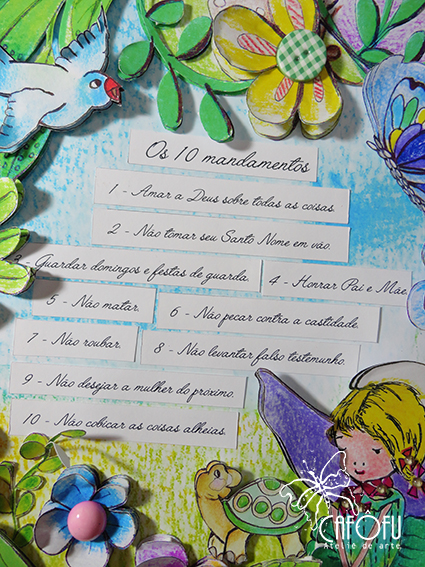 Os 10 mandamentos
1 - Amar a Deus sobre todas as coisas.
2 - Não tomar seu Santo Nome em vão.
3 - Guardar domingos e festas de guarda.
4 - Honrar Pai e Mãe
5 - Não matar.
6 - Não pecar contra a castidade.
7 - Não roubar.
8 - Não levantar falso testemunho.
9 - Não desejar a mulher do próximo.
10 - Não cobiçar as coisas alheias.
CAFÔFU
Ateliê de arte